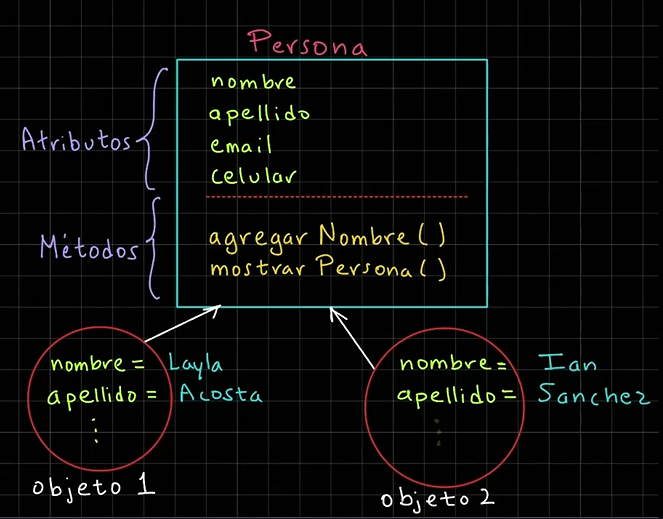 Persona
Atributos
nombre
apellido
email
celular
Métodos
agregar Nombre ( )
mostrar Persona ( )
nombre = Layla
apellido = Acosta
objeto 1
nombre = Ian
apellido = Sanchez
objeto 2